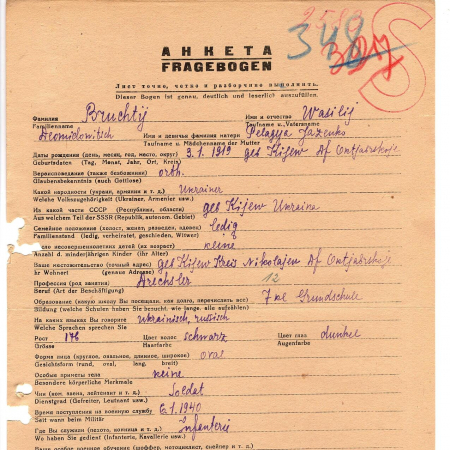 348
АНКЕТА
FRAGEBOGEN
Лист точно, четко и разборчиво выполнить.
Dieser Bogen ist genau, deutlich und leserlich auszufüllen.
Фамилия Bruchtij Имя и отчество Wasilij
Familienname Taufname u. Vatersname
Deomidowitsch Имя и девичья фамилия матери Pelagya
Taufname u. Mädchenname der Mutter
Даты рождения (день, месяц, год, место, округ) 3.1.1919 geb Kijew
Geburtsdaten (Tag, Monat, Jahr, Ort, Kreis)
Вероисповедания (также безбожники) orth.
Glaubensbekenntnis (auch Gottlose)
Какой народности (украин, армянин и т. д.) Ukrainer
Welche Volkszugehörigkeit (Ukrainer, Armenier usw.)
На какой части СССР (Республики, области) geb Kijew Ukraina
Aus welchem Teil der SSSR (Republik, autonom. Gebiet)
Семейное положение (холост, женат, разведен, вдовец) ledig
Familienstand (ledig, verheiratet, geschieden, Witwer)
Число несовершеннолетних детей (их возраст) keine
Anzahl d. minderjährigen Kinder (ihr Alter)
Ваше местожительство (точный адрес) geb Kijew Kreis Nikolajew
Ihr Wohnort (genaue Adresse)
Профессия (род занятия) Drechsler 12
Beruf (Art der Beschäftigung)
Образование (какую школу Вы посещали, или долго, перечислить все) 7 kl Grundschule
Bildung (welche Schulen haben Sie besucht, wie lange, alle aufzählen)
На каких языках Вы говорите ukrainisch, russisch
Welche Sprachen sprechen Sie
Рост 176 Цвет волос schwarz Цвет глаз dunkel
Grösse Haarfarbe Augenfarbe
Форма лица (круглое, овальное, длинное, широкое) oval
Gesichtsform (rund, oval, lang, breit)
Особые приметы тела keine
Besondere körperliche Merkmale
Чин (кол. воена, лейтенант и т. д.) Soldat
Dienstgrad (Gefreiter, Leutnant usw.)
Время поступления на военную службу 6.1.1940
Seit wann beim Militär
Где Вы служили (пехота, конница и т. д.) Infanterie
Wo haben Sie gedient (Infanterie, Kavallerie usw.)
Ваше особое военное обучение (шоффер, мотоциклист, снейпер и т. д.)